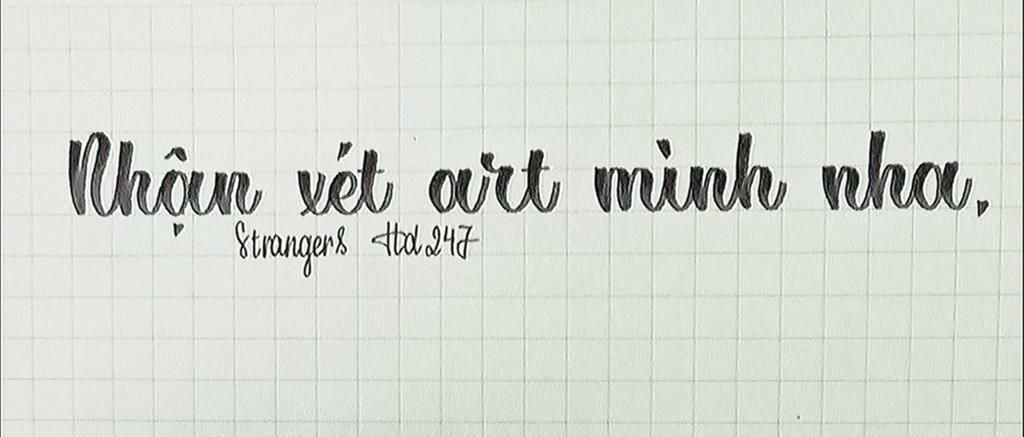 Nhận xét art mình nha.
Strangers Hd247